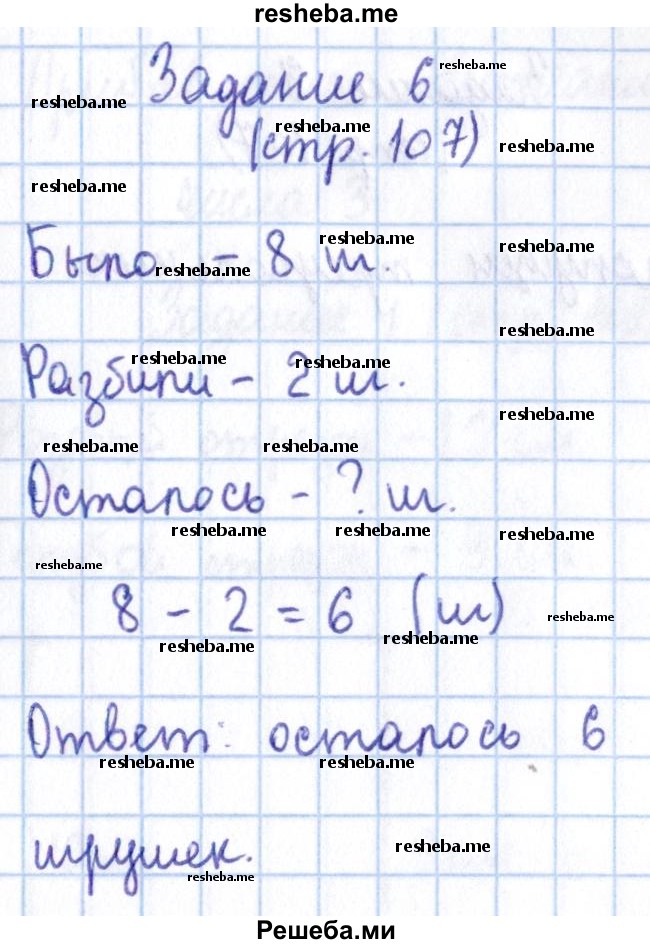 resheba.me
Задание 6 resheba.me
resheba.me
(стр. 107) resheba.me resheba.me
resheba.me
Было - 8 ш. resheba.me resheba.me resheba.me
resheba.me
Разбили - 2 ш. resheba.me resheba.me
resheba.me
resheba.me resheba.me
Осталось - ? ш.
resheba.me resheba.me resheba.me
resheba.me
8 - 2 = 6 (ш) resheba.me
resheba.me resheba.me
Ответ: осталось 6
resheba.me resheba.me
игрушек. resheba.me
resheba.me
Решеба.ми